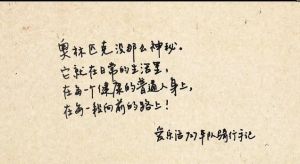 奥林匹克没那么神秘。
它就在日常的生活里，
在每一个健康的普通人身上，
在每一段向前的路上！
爱乐活707车队骑行手记